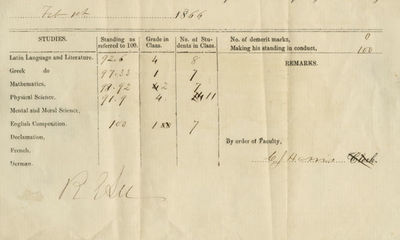 Feb 1st 1866
STUDIES. Standing as referred to 100. Grade in Class. No. of Students in Class.
No. of demerit marks, 0
Making his standing in conduct, 100
REMARKS.
Latin Language and Literature. 92.6 4 8
Greek do 97.33 1 7
Mathematics, 91.92 2 7
Physical Science, 91.9 4 11
Mental and Moral Science,
English Composition. 100 1 7
Declamation,
French,
German.
By order of Faculty,
Clerk.
R E Lee